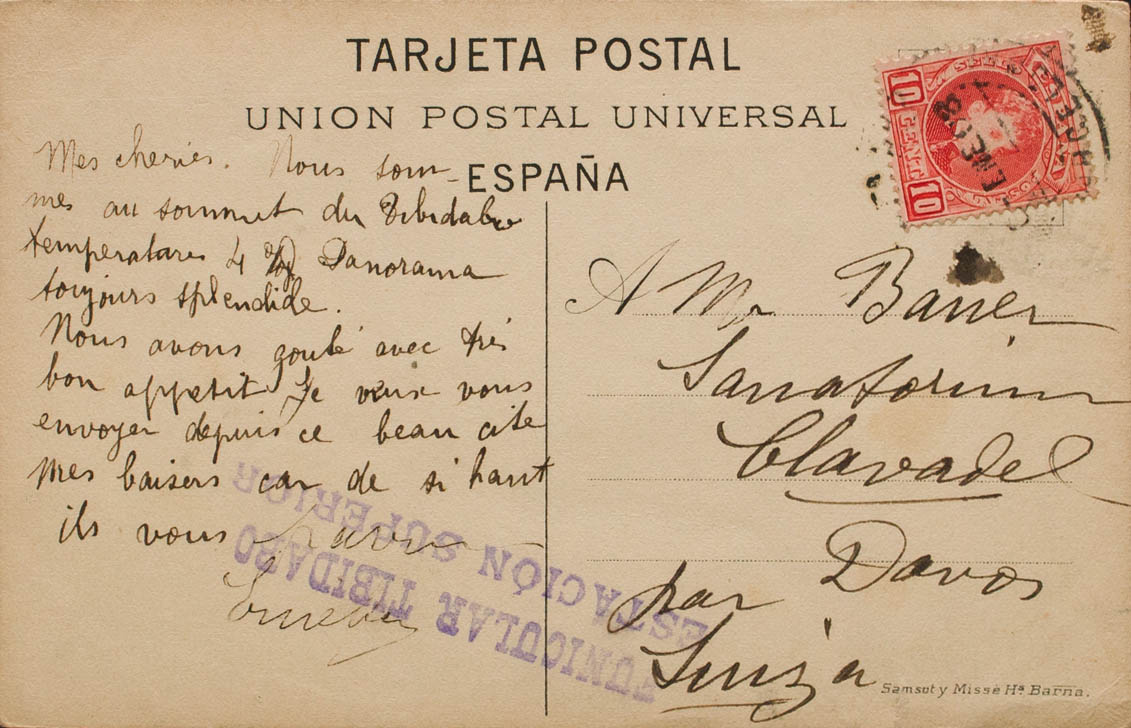 TARJETA POSTAL
UNION POSTAL UNIVERSAL
ESPAÑA
Mes cheries. Nous som-
mes au sommet du Tibidabo
temperature 4 Panorama
toujours splendide.
Nous avons gouté avec très
bon appetit Je veux vous
envoyer depuis ce beau cite
Mes baisers car de si haut
ils vous
A Mr
Sanatorium
Clavadel
Davos
par
Suiza
10 CENT 10
ENE 08
FUNICULAR TIBIDABO
ESTACIÓN SUPERIOR
Samsot y Missé Hs Barna.